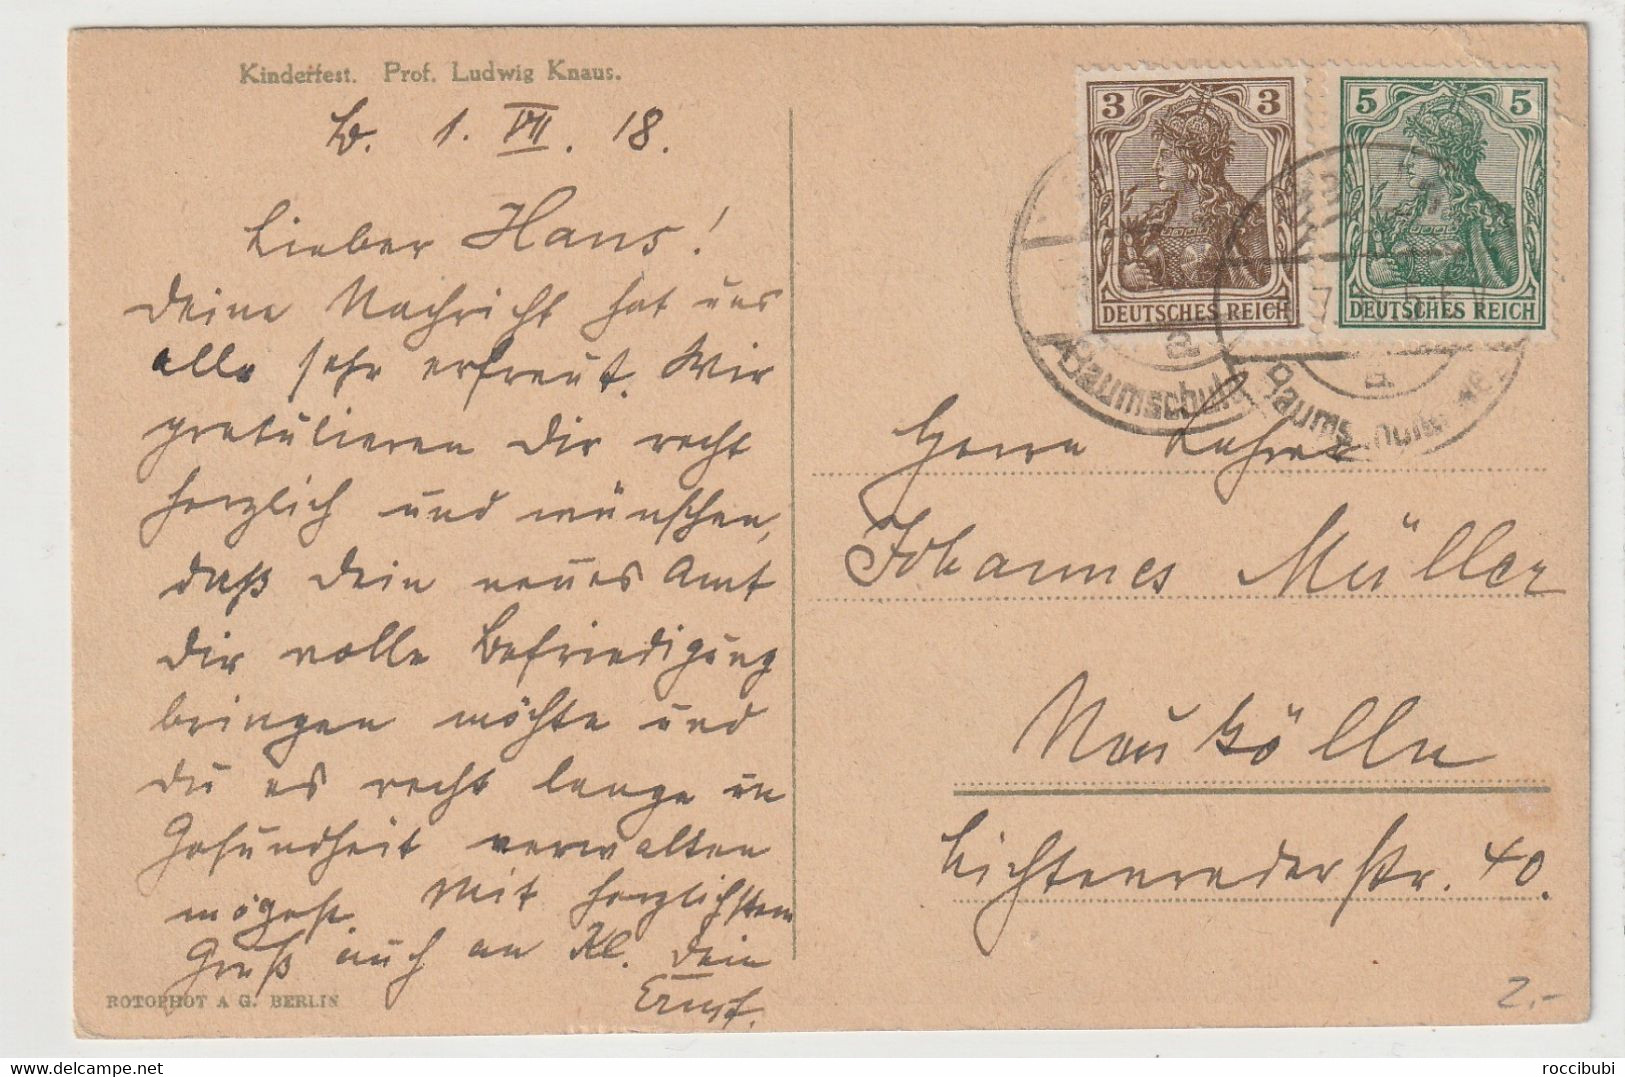 Kinderfest. Prof. Ludwig Knaus.
B. 1. VII. 18.
Lieber Hans!
Deine Nachricht hat uns
alle sehr erfreut. Wir
gratulieren Dir recht
herzlich und wünschen,
daß Dein neues Amt
Dir volle Befriedigung
bringen möchte und
Du es recht lange in
Gesundheit verwalten
mögest. Mit herzlichstem
Gruß auch an Kl. Dein
Ernst.
ROTOPHOT A G. BERLIN
3 3
DEUTSCHES REICH
5 5
DEUTSCHES REICH
Baumschul
a
Baums
a
Herrn
Johannes Müller
Neukölln
Lichtenraderstr. 40.
2.-
roccibubi